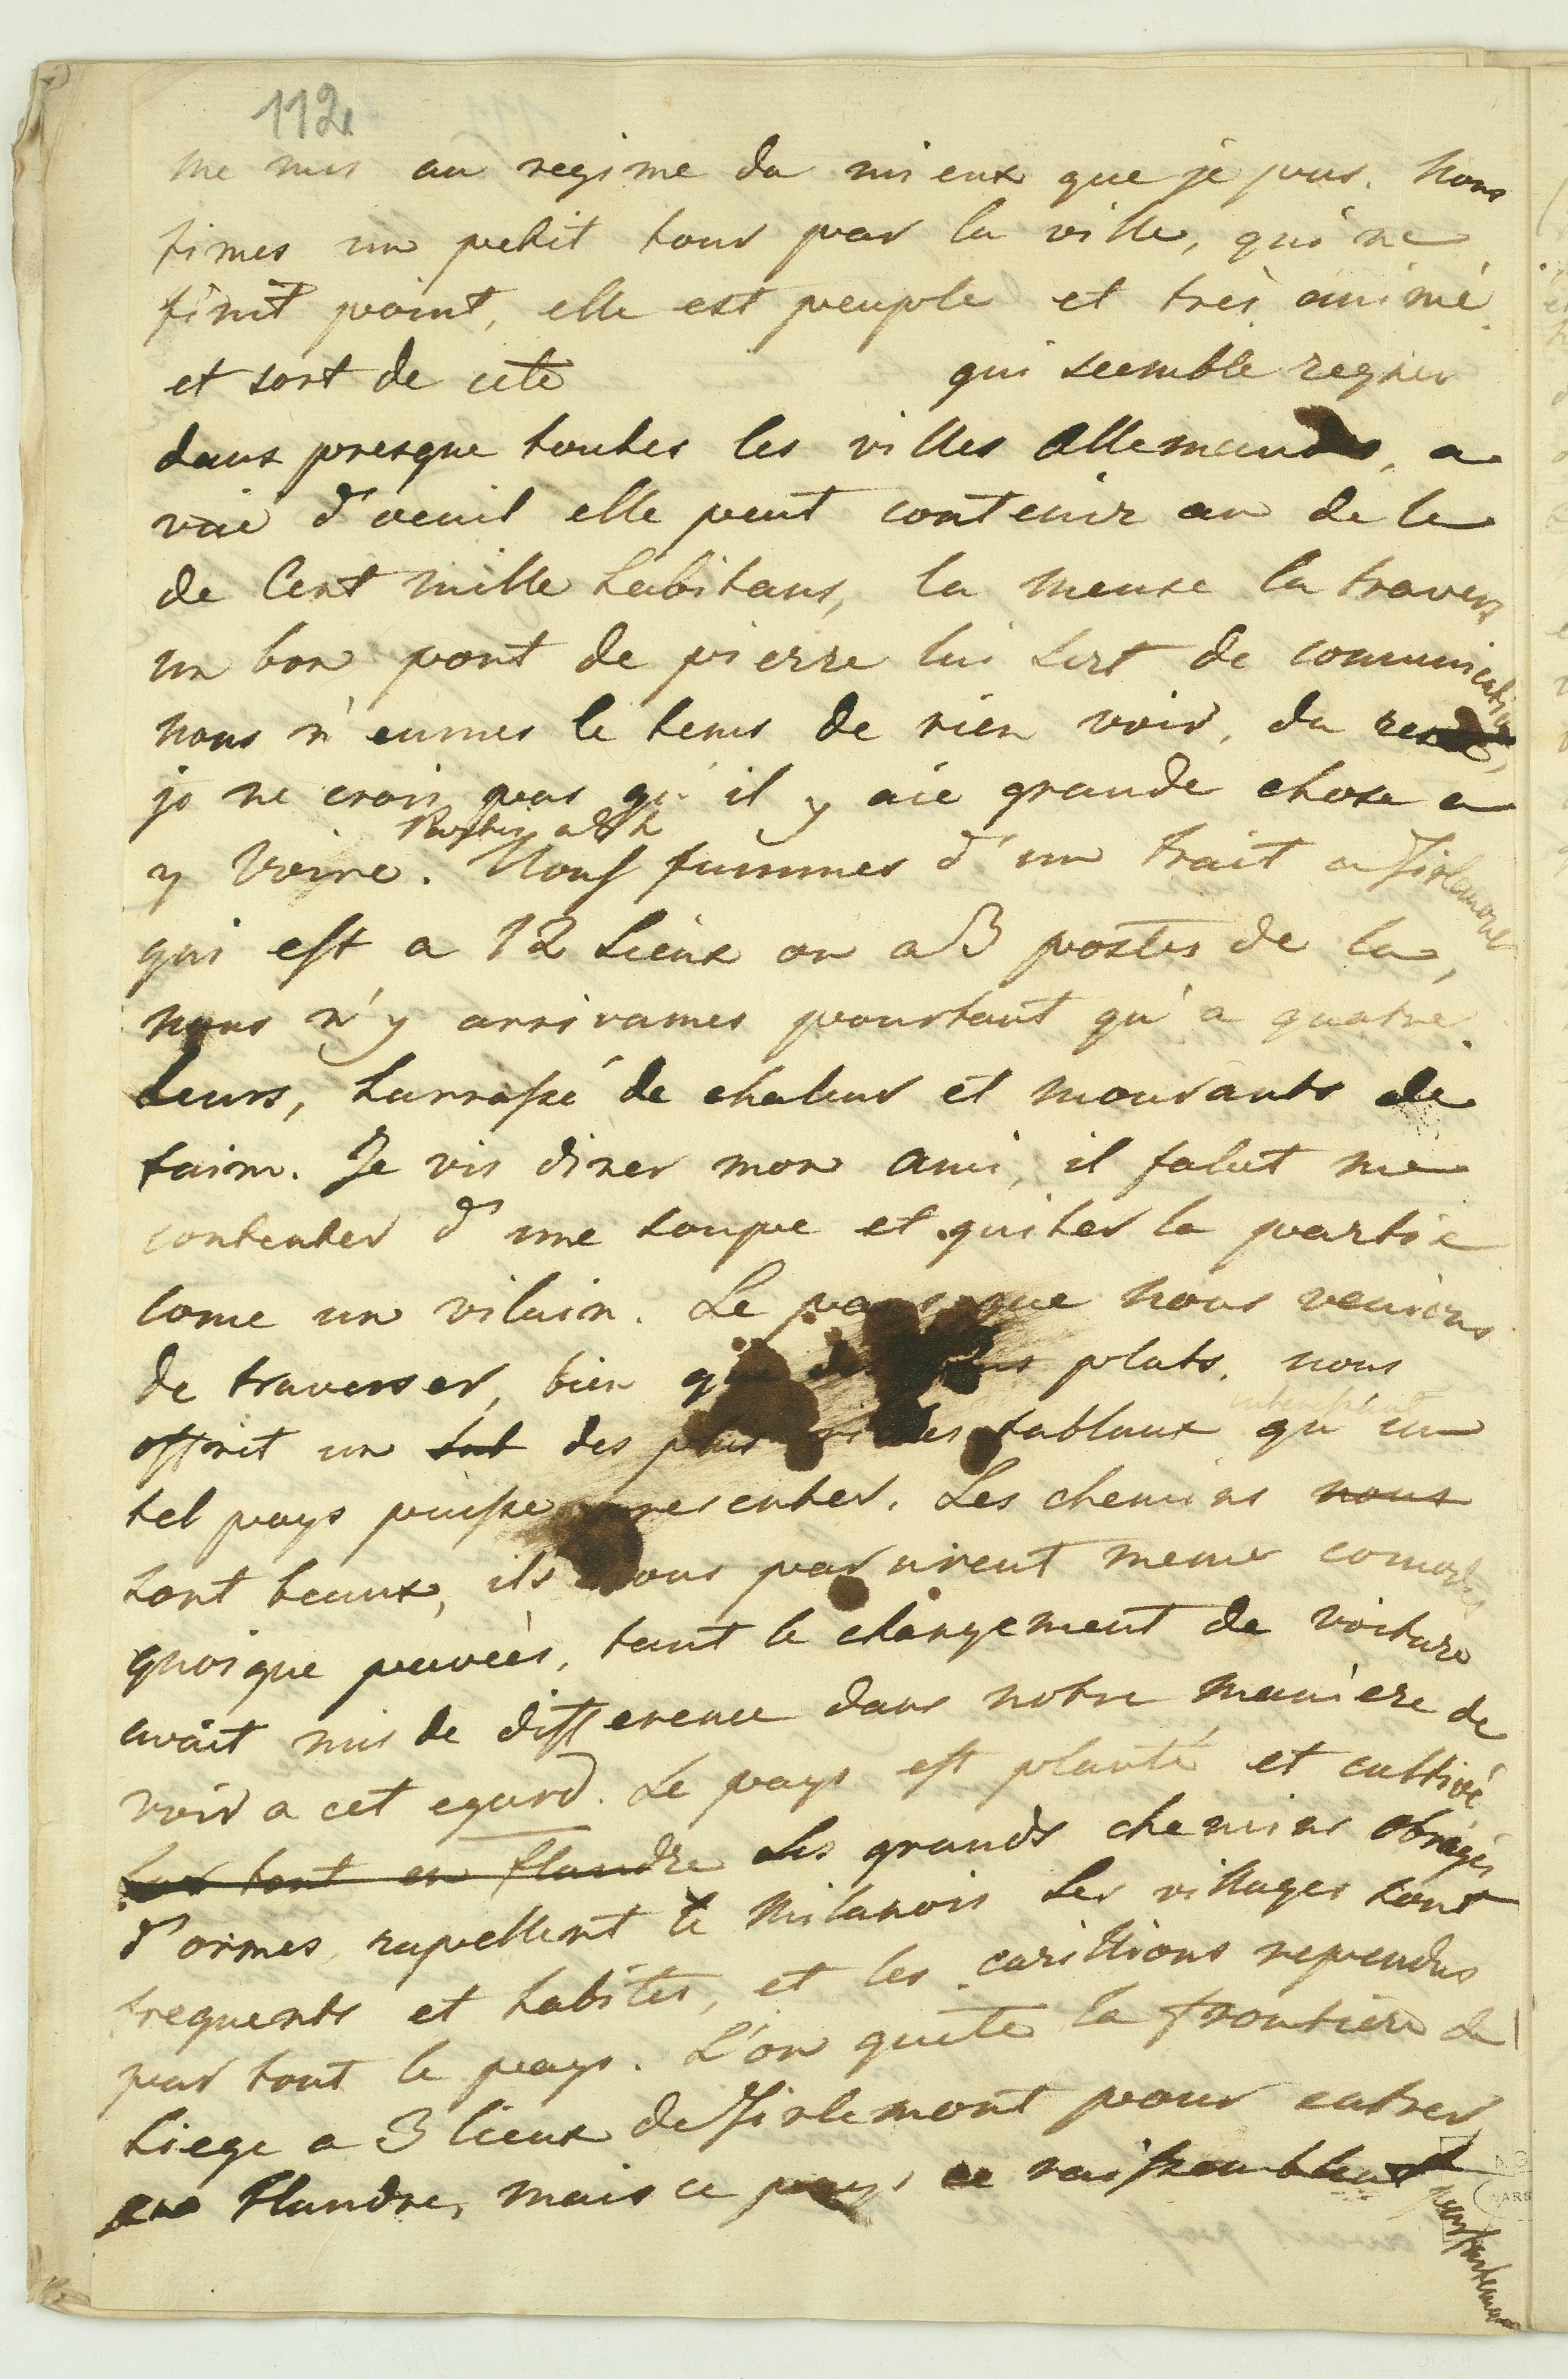 112
me mis au regime du mieux que je pus. Nous
fimes un petit tour par la ville, qui ne
finit point, elle est peuple et très animé
et sort de cete qui seemble regner
dans presque toutes les villes Allemandes, a
vüe d'oeuil elle peut contenir au de le
de Cent mille habitans, la meuse la travers
un bon pont de pierre lui sert de communication
nous n'eumes le tems de rien voir, du reste,
je ne crois pas qu'il y aie grande chose a
y Voire. Nous fummes d'un trait a Tirlemont
qui est a 12 Lieux ou a 3 postes de la,
nous n'y arrivames pourtant qu'a quatre
heurs, harrassé de chaleur et mourants de
faim. Je vis diner mon ami, il falut me
contenter d'une soupe et quiter la partie
come un vilain. Le pays que nous venions
de traverser, bien que des plus plats, nous
offrit un tab des plus tablaux qu'un
tel pays puisse presenter. Les chemins nous
sont beaux, ils nous parurent meme comodes
quoique pavées, tant le changement de voiture
avait mis de difference dans notre maniere de
voir a cet egard. Le pays est planté et cultivé
sur tout en flandre Les grands chemins obragés
d'ormes, rapellent le Milanois Les villages sont
frequents et habités, et les carillions rependus
par tout le pays. L'on quite la frontiere de
Liege a 3 lieux de Tirlemont pour entrer
en Flandre, mais ce pays se raissemblent
parfaitement